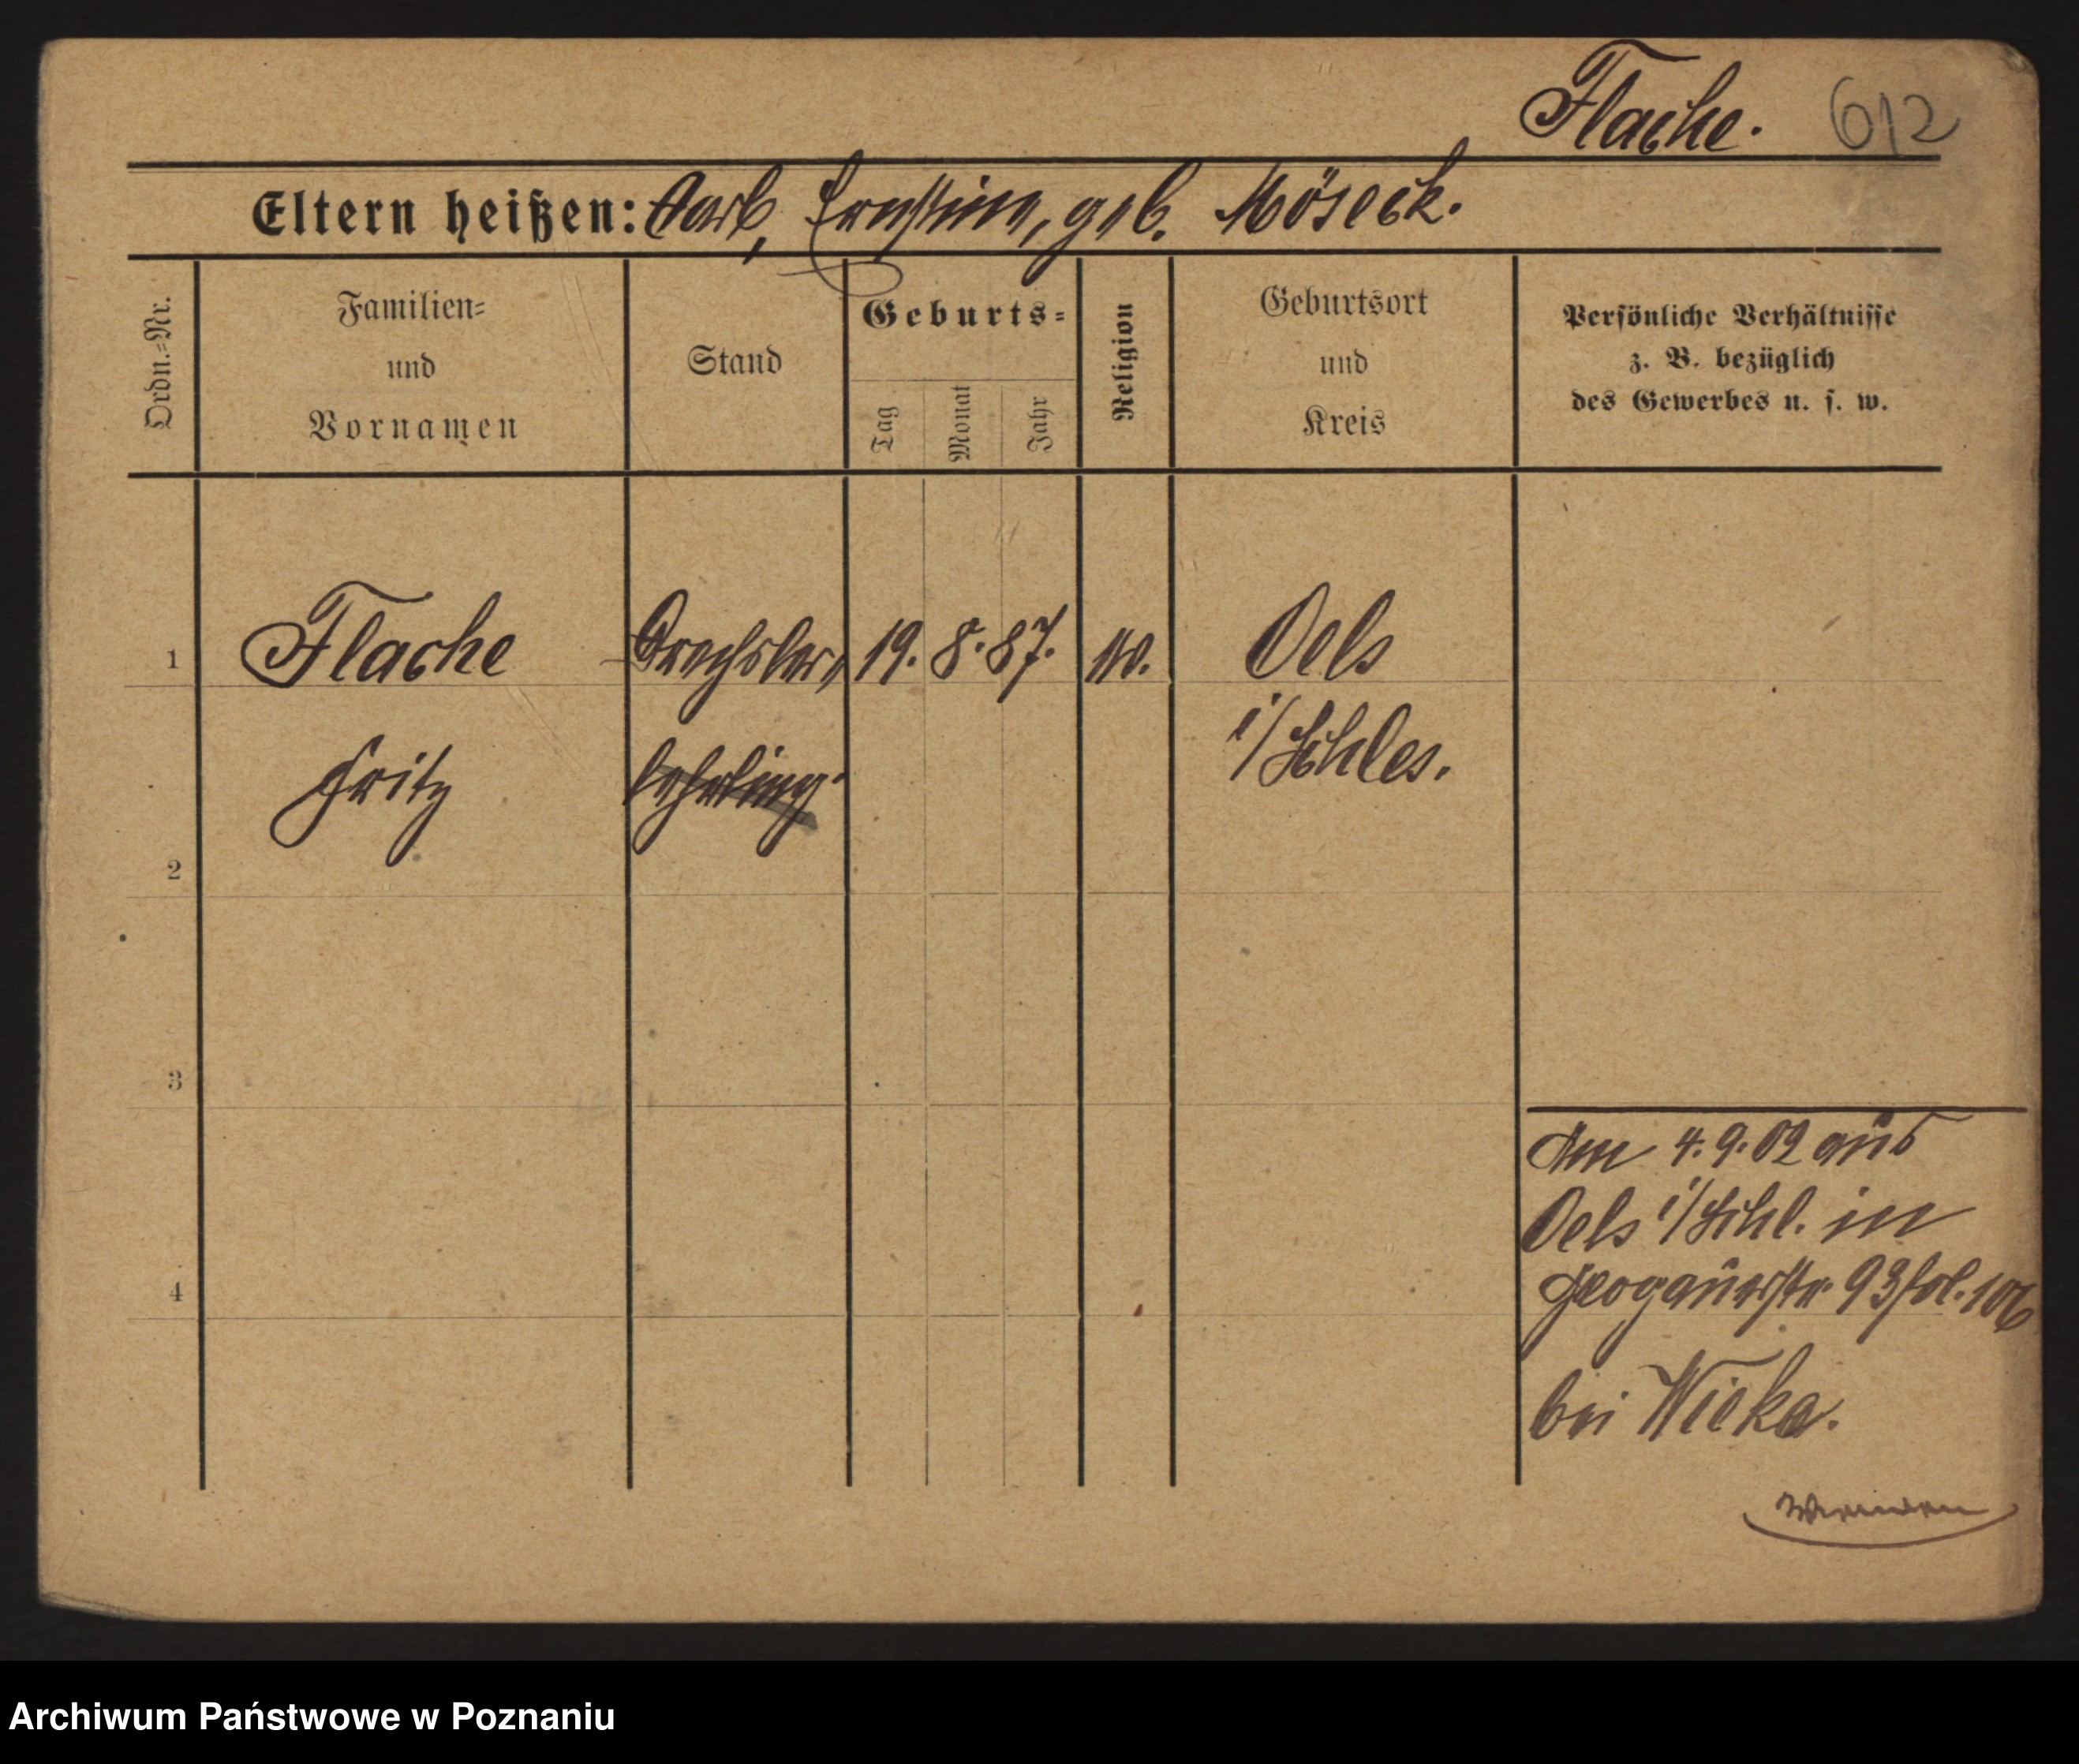 Flache. 612
Eltern heißen: Carl, Ernstine, geb. Möseck.
Ordn.=Nr.
Familien=
und
Vornamen
Stand
Geburts=
Tag
Monat
Jahr
Religion
Geburtsort
und
Kreis
Persönliche Verhältnisse
z. B. bezüglich
des Gewerbes u. s. w.
1 Flache Drechsler= 19. 8. 87. Oels
Fritz lehrling. i/Schles.
2
3
4
Am 4. 9. 02 aus
Oels i/Schl. in
Glogauerstr. 93 fol. 106
bei Wieka.
Wenden
Archiwum Państwowe w Poznaniu